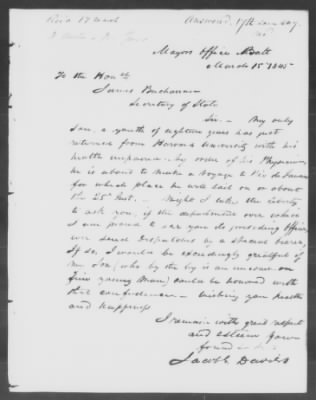 Rec'd 17 March
Answered. 17th same day.
Mayors Office Balt
March 15th 1845
To the Honble
James Buchanan
Secretary of State
Sir - My only
Son, a youth of eighteen years has just
returned from Harvard University with his
health impaired - by order of his Physician
he is about to make a voyage to Rio de Janeiro
for which place he will sail on or about
the 25th Inst. - Might I take the liberty
to ask you, if the department over which
I am proud to see you the presiding Officer,
will send Dispatches by a special bearer,
If so, I would be exceedingly grateful if
my Son, (who by the by is an
fine young man) could be honored with
that confidence - wishing you health
and happiness
I remain with great respect
and esteem Your
friend
Jacob G. Davies